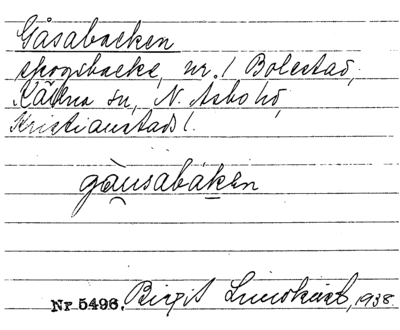 Gåsabacken
skogsbacke, nr. 1 Bolestad,
Kävna sn, N. Åsbo hd,
Kristianstads l.
gàusabáken
Nr 5496. Birgit Lindkvist, 1938.